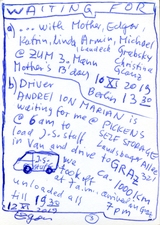 WAITING FOR
a) ... with Mother, Edgar,
Katrin, Linda, Armin, Michael
Laudeck Grabsky
@ ZUM 3. Mann Christine
Mother's B'day Glanz
10 XI 2019
b) Driver Berlin 13 30
ANDREI ION MARIAN is
waiting for me @ PICKENS
@ 6 am to SELF STORAGE
load J.-S.-Stuff Landsberger Allee
in Van and drive to GRAZ
J.-S.-Stuff
we took off ca. 1000 km
at 7 a.m.
unloaded all 7 pm
till 19 30
12 XI 2019